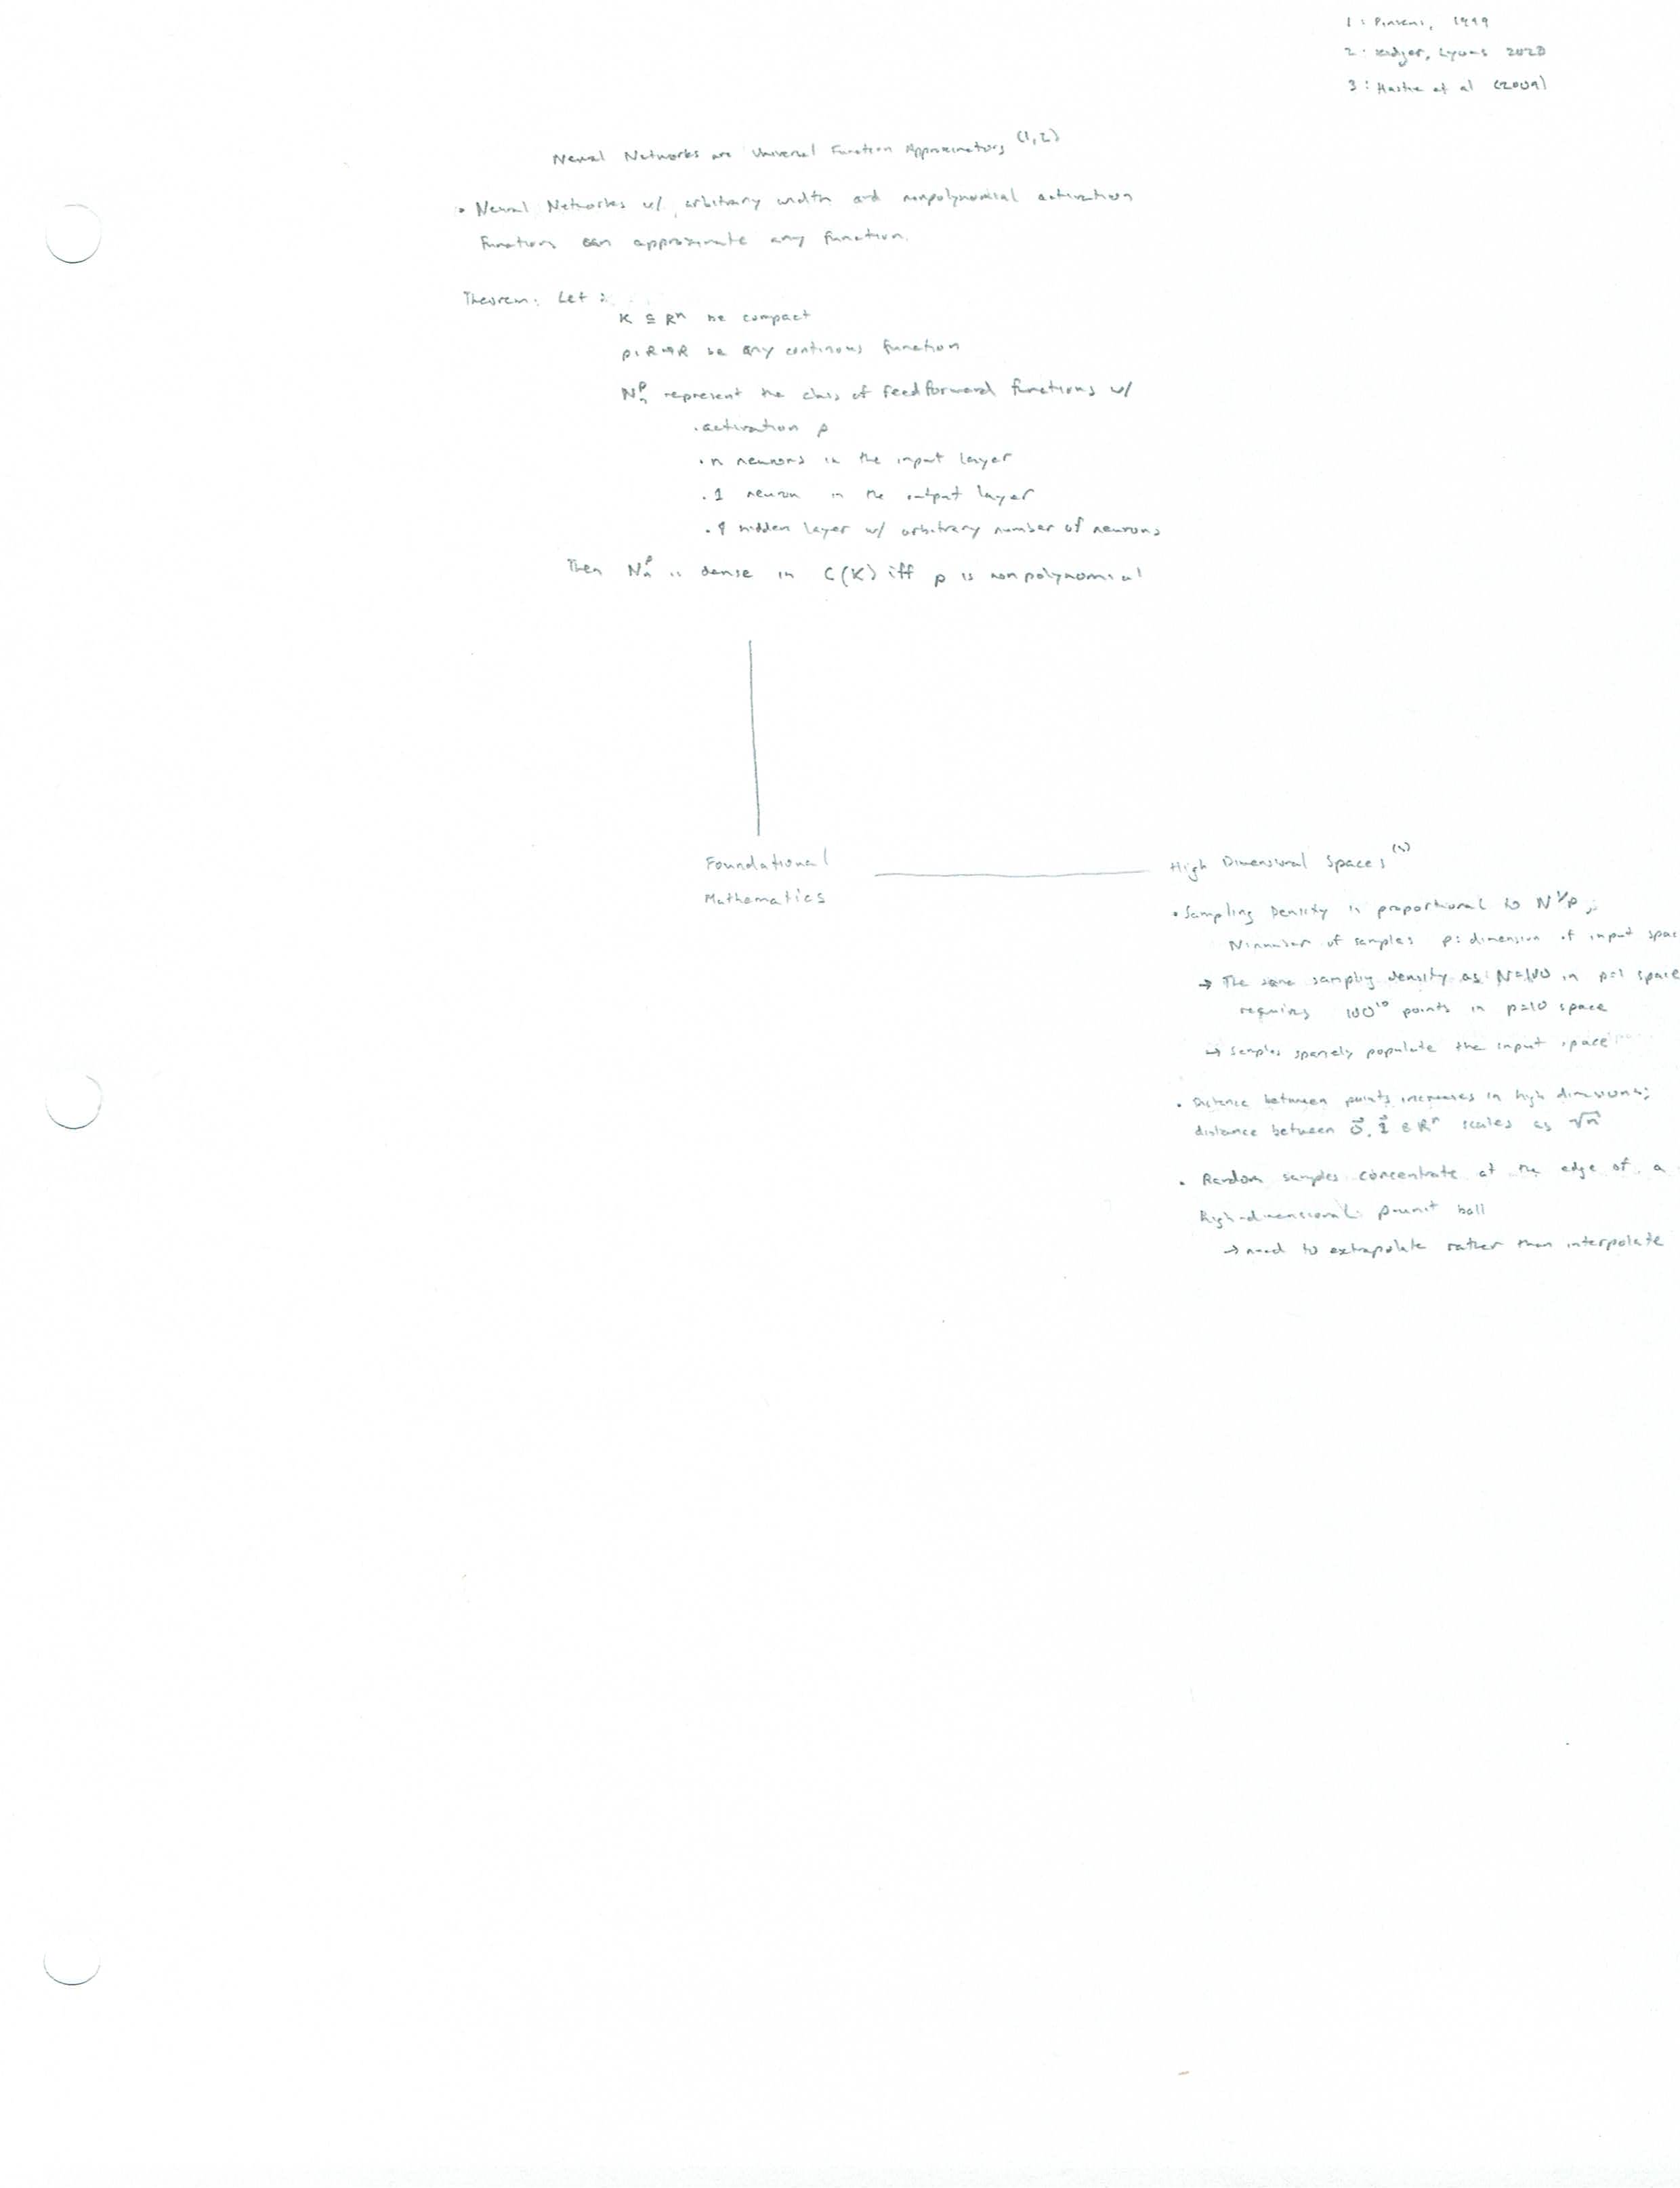 1 : Pinkus, 1999
2 : Kidger, Lyons 2020
3 : Hastie et al (2009)
Neural Networks are Universal Function Approximators (1,2)
• Neural Networks w/ arbitrary width and nonpolynomial activation
functions can approximate any function.
Theorem: Let :
K ⊆ Rⁿ be compact
ρ: R→R be any continous function
Nₙᵖ represent the class of feedforward functions w/
• activation ρ
• n neurons in the input layer
• 1 neuron in the output layer
• 1 hidden layer w/ arbitrary number of neurons
Then Nₙᵖ is dense in C(K) iff ρ is nonpolynomial
Foundational
Mathematics
High Dimensional Spaces (3)
• Sampling Density is proportional to N^1/p ;
N: number of samples p: dimension of input spac
→ The same sampling density as N=100 in p=1 space
requires 100¹⁰ points in p=10 space
→ Samples sparsely populate the input space
• Distance between points increases in high dimensions;
distance between 0⃗, 1⃗ ∈ Rⁿ scales as √n
• Random samples concentrate at the edge of a
high-dimensional p-unit ball
→ need to extrapolate rather than interpolate